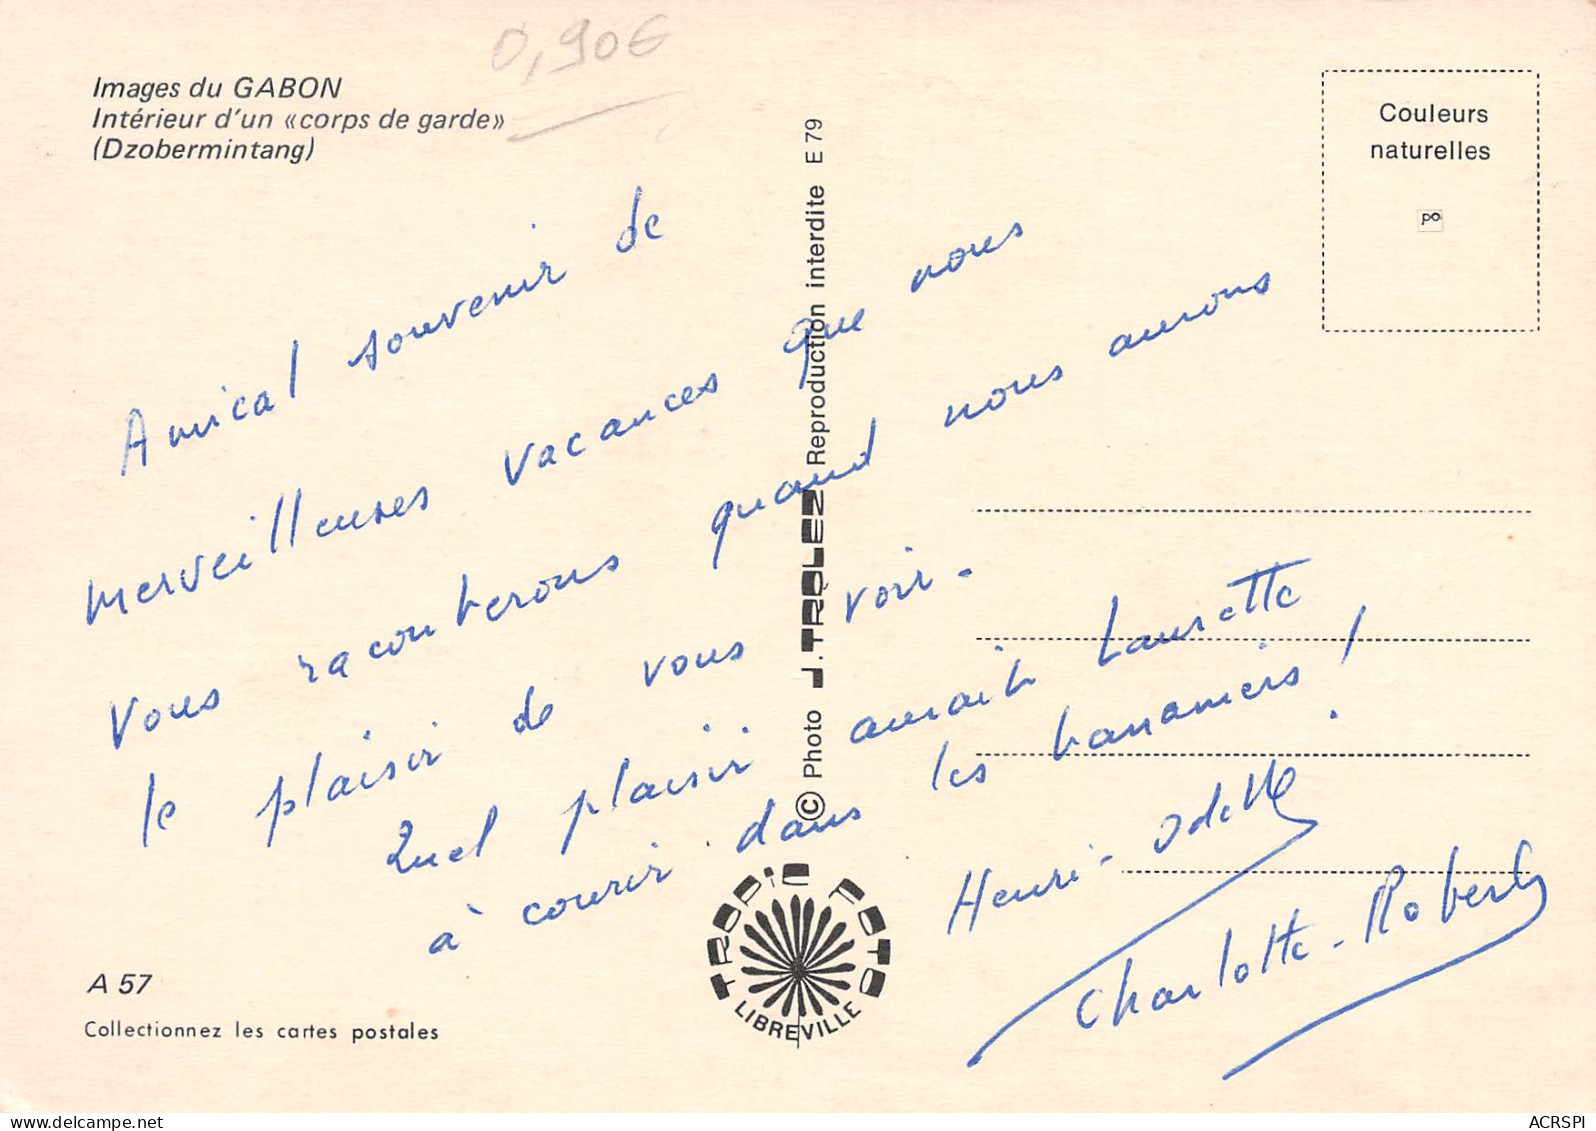 0,90€
Images du GABON
Intérieur d'un «corps de garde»
(Dzobermintang)
Couleurs
naturelles
po
Amical souvenir de
merveilleuses vacances que nous
vous raconterons quand nous aurons
le plaisir de vous voir.
Quel plaisir aurait Laurette
à courir dans les bananiers !
Henri - Odette
Charlotte - Robert
© Photo J. TROLEZ Reproduction interdite E 79
TROPIC FOTO
LIBREVILLE
A 57
Collectionnez les cartes postales
ACRSPI